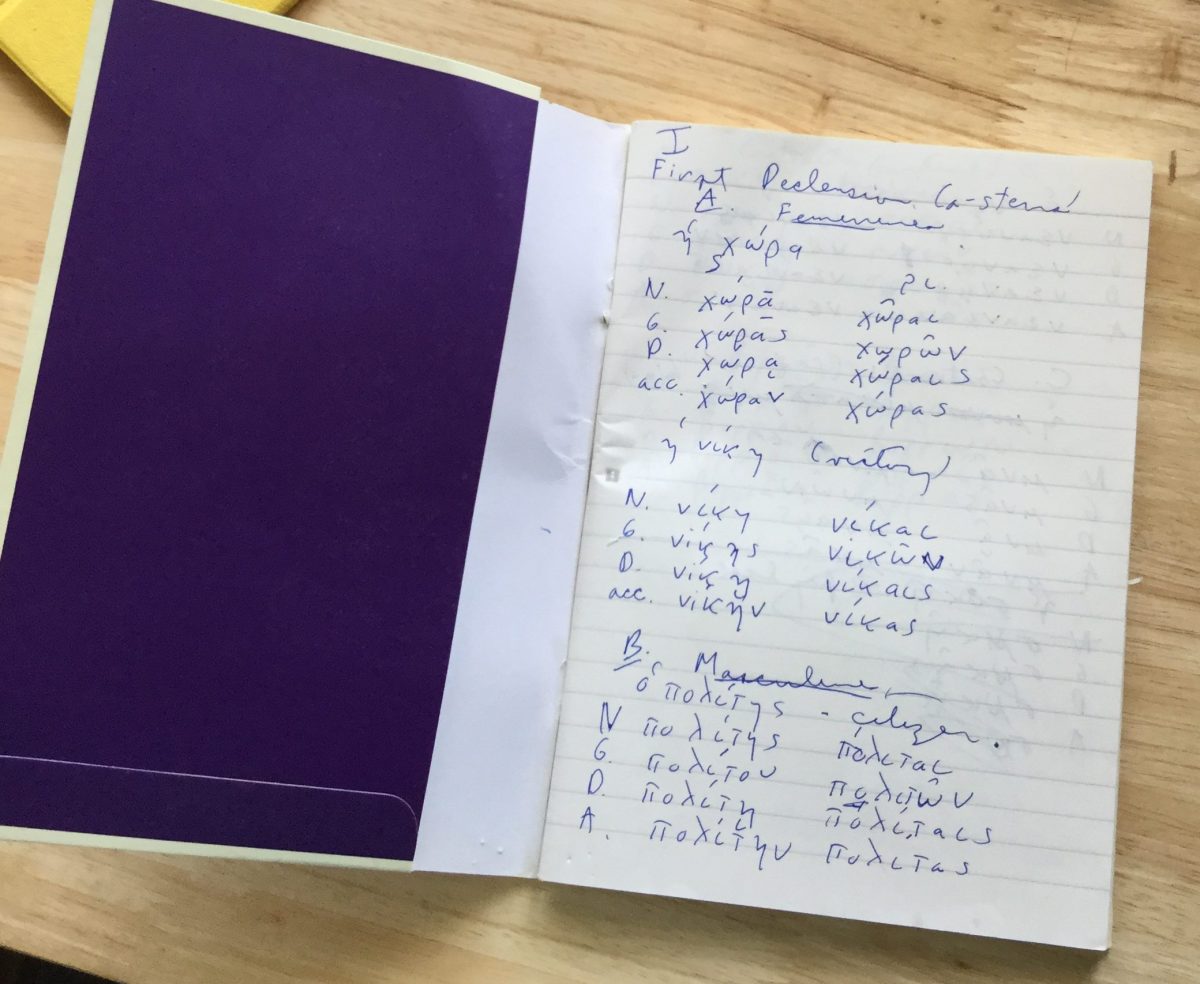 I
First Declension (a-stems)
A. Feminines
ἡ χώρα
S pl.
N. χώρᾱ χῶραι
G. χώρᾱς χωρῶν
D. χώρᾳ χώραις
acc. χώραν χώρας
ἡ νίκη (victory)
N. νίκη νίκαι
G. νίκης νικῶν
D. νίκῃ νίκαις
acc. νίκην νίκας
B. Masculine
ὁ πολίτης - citizen.
N πολίτης πολιται
G. πολίτου πολιτῶν
D. πολίτῃ πολίταις
A. πολίτην πολιτας